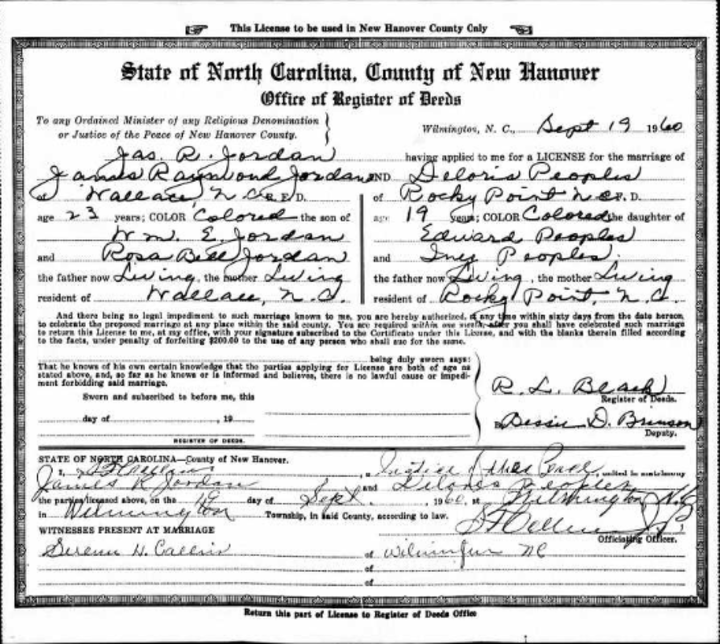 This License to be used in New Hanover County Only
State of North Carolina, County of New Hanover
Office of Register of Deeds
To any Ordained Minister of any Religious Denomination
or Justice of the Peace of New Hanover County.
Wilmington, N. C., Sept 19 1960
Jas. R. Jordan having applied to me for a LICENSE for the marriage of
James Raymond Jordan AND Deloris Peoples
of Wallace, N.C. R.F.D. of Rocky Point N.C. R.F.D.
age 23 years; COLOR Colored the son of age 19 years; COLOR Colored the daughter of
Wm. E. Jordan Edward Peoples
and Rosa Bell Jordan and Inez Peoples
the father now Living, the mother Living the father now Living, the mother Living
resident of Wallace, N.C. resident of Rocky Point, N.C.
And there being no legal impediment to such marriage known to me, you are hereby authorized, at any time within sixty days from the date hereof,
to celebrate the proposed marriage at any place within the said county. You are required within one month after you shall have celebrated such marriage
to return this License to me, at my office, with your signature subscribed to the Certificate under this License, and with the blanks therein filled according
to the facts, under penalty of forfeiting $200.00 to the use of any person who shall sue for the same.
being duly sworn says:
That he knows of his own certain knowledge that the parties applying for License are both of age as
stated above, and, so far as he knows or is informed and believes, there is no lawful cause or impedi-
ment forbidding said marriage.
Sworn and subscribed to before me, this
day of , 19
REGISTER OF DEEDS.
R. L. Black
Register of Deeds.
Bessie D. Brinson
Deputy.
STATE OF NORTH CAROLINA—County of New Hanover.
I, , a Justice of the Peace, united in matrimony
James R. Jordan and Delores Peoples
the parties licensed above, on the 19 day of Sept., 1960, at Wilmington N.C.
in Wilmington Township, in said County, according to law.
Officiating Officer.
WITNESSES PRESENT AT MARRIAGE
H. of Wilmington NC
of
of
Return this part of License to Register of Deeds Office